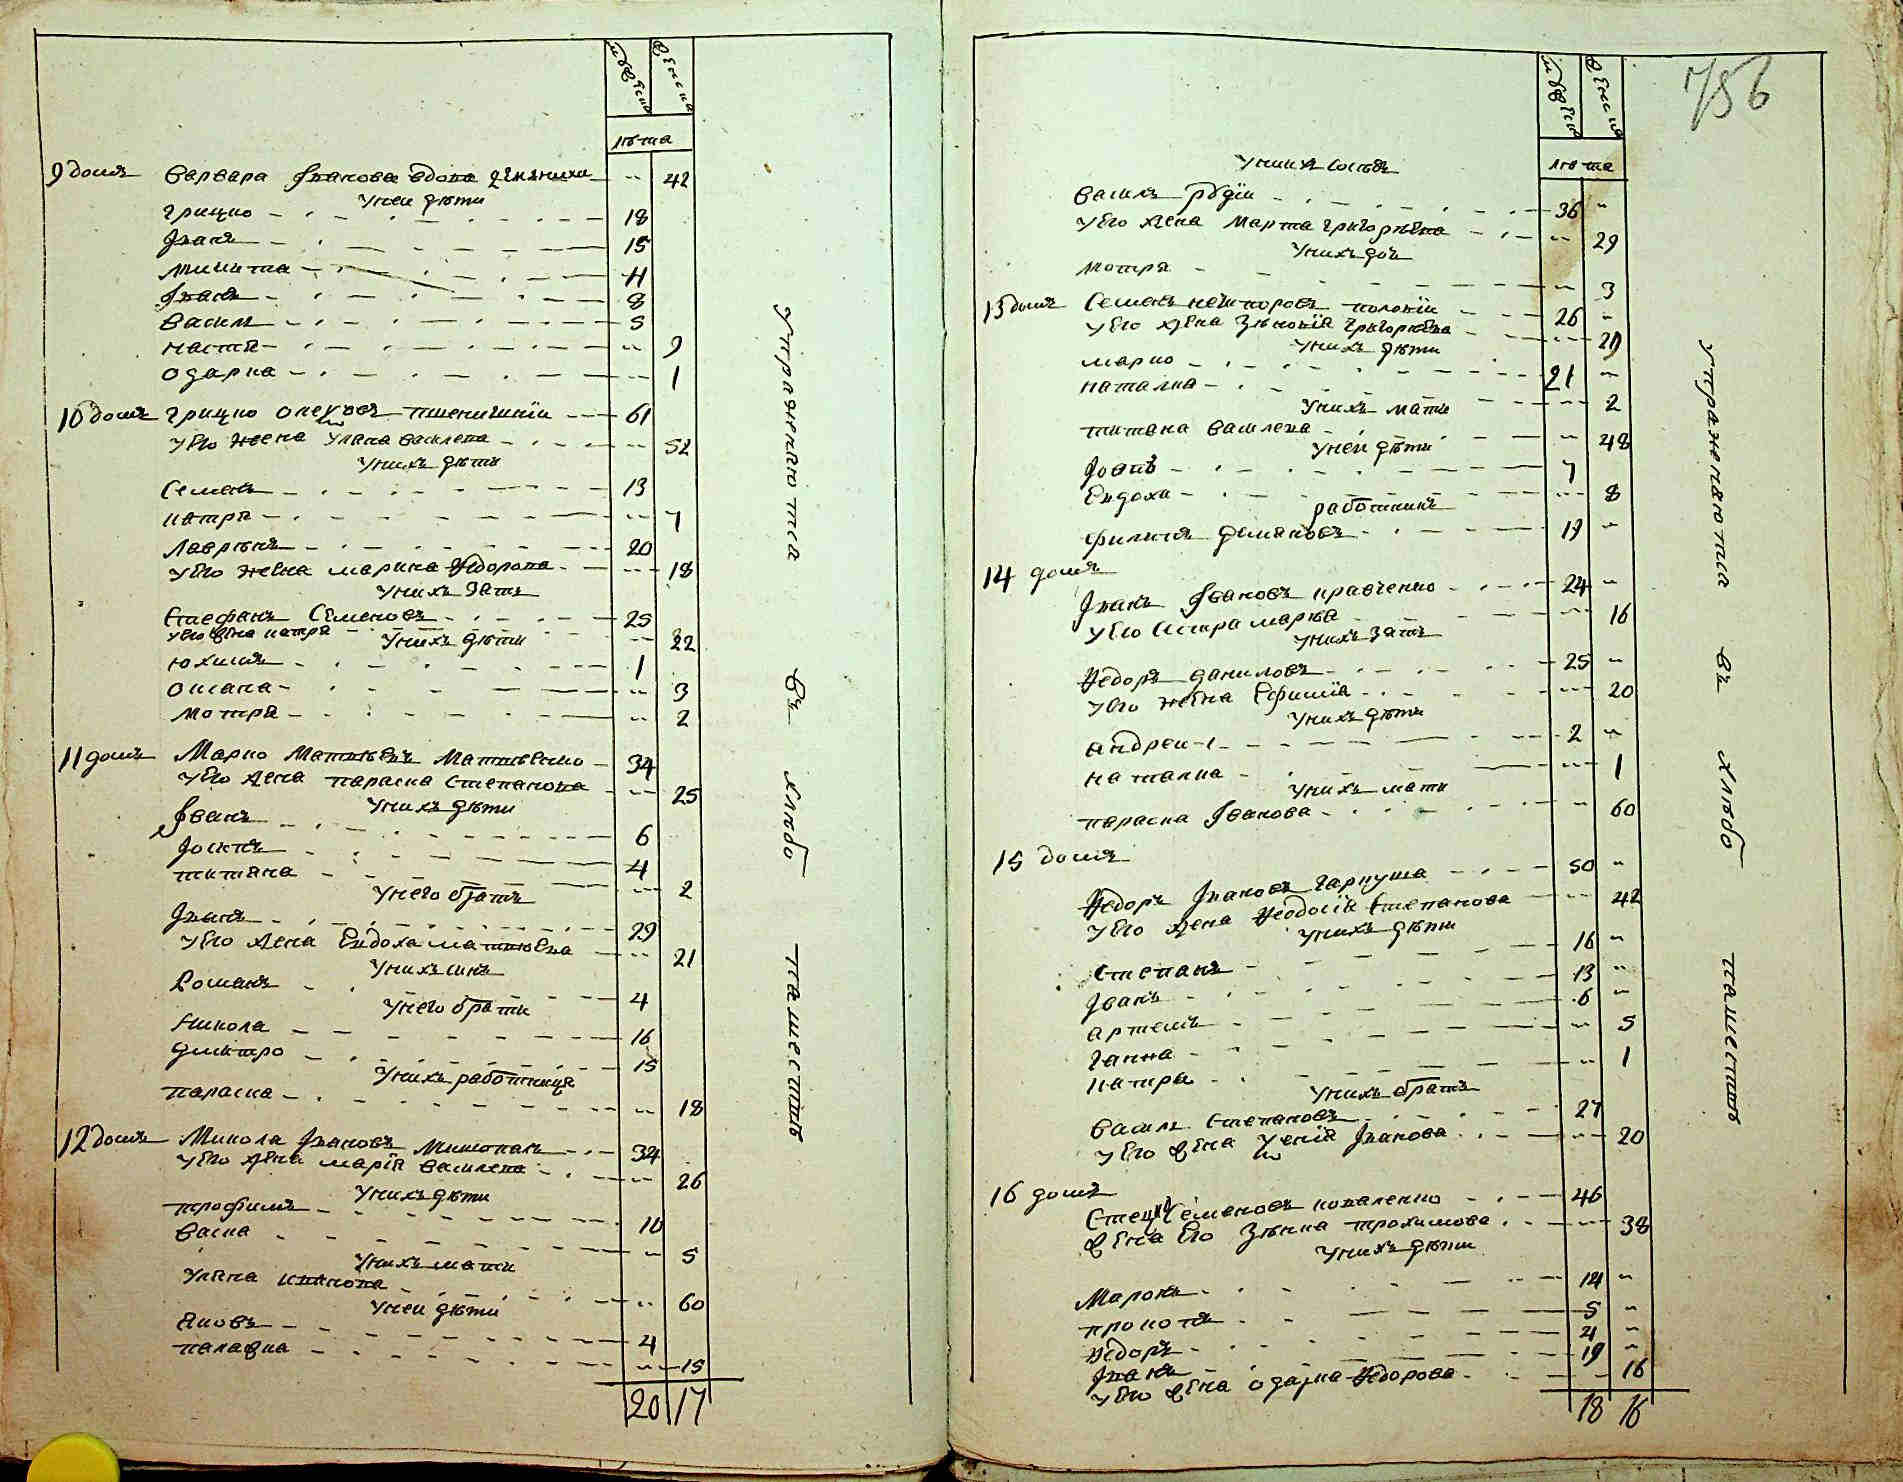 мужеска женска
лѣта
9 домъ Варвара Іванова вдова -- 42
Унеи дѣти
Грицко 18
Іванъ 15
Микита 11
Іванъ 8
Василь 5
Настя -- 9
Одарка -- 1
10 домъ Грицко пшеничнїи 61
Уего жена Уляна Василева -- 52
Унихъ дѣти
Семенъ 13
Катря -- 7
Лаврѣнъ 20
Уего жена Марина Ѳедорова -- 18
Унихъ зять
Стефанъ Семеновъ 25
Уего жена Катря -- 22
Унихъ дѣти
Юхимъ 1
Оксана -- 3
Мотря -- 2
11 домъ Марко Матвѣевъ Матвѣенко 34
Уего жена Параска Степанова -- 25
Унихъ дѣти
Іванъ 6
Іосипъ 4
Титяна -- 2
Унего братъ
Іванъ 29
Уего жена Евдоха Матвѣева -- 21
Унихъ синъ
Романъ 4
Унего брати
Никола 16
Дмитро 15
Унихъ работница
Параска -- 18
12 домъ Микола Івановъ 32
Уего жена Марїя Василева -- 26
Унихъ дѣти
Трофимъ 10
Васка -- 5
Унихъ мати
Уляна Іванова -- 60
Унеи дѣти
Яковъ 4
Палажка -- 15
20 17
Упражняются въ хлѣбопашествѣ
756
мужеска женска
лѣта
Унихъ сосѣдъ
Василь Рудїи 36 --
Уего жена Марта Григорѣева -- 29
Унихъ дочь
Мотря -- 3
13 домъ Семенъ 26 --
Уего жена Зѣновїя Григорѣева -- 20
Унихъ дѣти
Марко 21 --
Наталка -- 2
Унихъ мати
Титяна Василева -- 48
Унеи дѣти
Іовъ 7
Евдоха -- 8
работникъ
Филипъ Демяновъ 19 --
14 домъ
Іванъ Івановъ Кравченко 24 --
Уего сестра Марѣя -- 16
Унихъ зять
Ѳедоръ Даниловъ 25 --
Уего жена Ефимїя -- 20
Унихъ дѣти
Андреи 2 --
Наталка -- 1
Унихъ мати
Параска Іванова -- 60
15 домъ
Ѳедоръ Івановъ Гаркуша 50 --
Уего жена Ѳеодосїя Степанова -- 42
Унихъ дѣти
Степанъ 16 --
Іванъ 13 --
Артемъ 6 --
Ганна -- 5
Катря -- 1
Унихъ братъ
Василь Степановъ 27
Уего жена Ксенїя Іванова -- 20
16 домъ
Стецко Семеновъ Коваленко 46
Жена его Зѣнка Трохимова -- 38
Унихъ дѣти
Марокъ 12 --
Прокопъ 5 --
Ѳедоръ 4 --
Іванъ 19 --
Уего жена Одарка Ѳедорова -- 16
18 16
Упражняются въ хлѣбопашествѣ